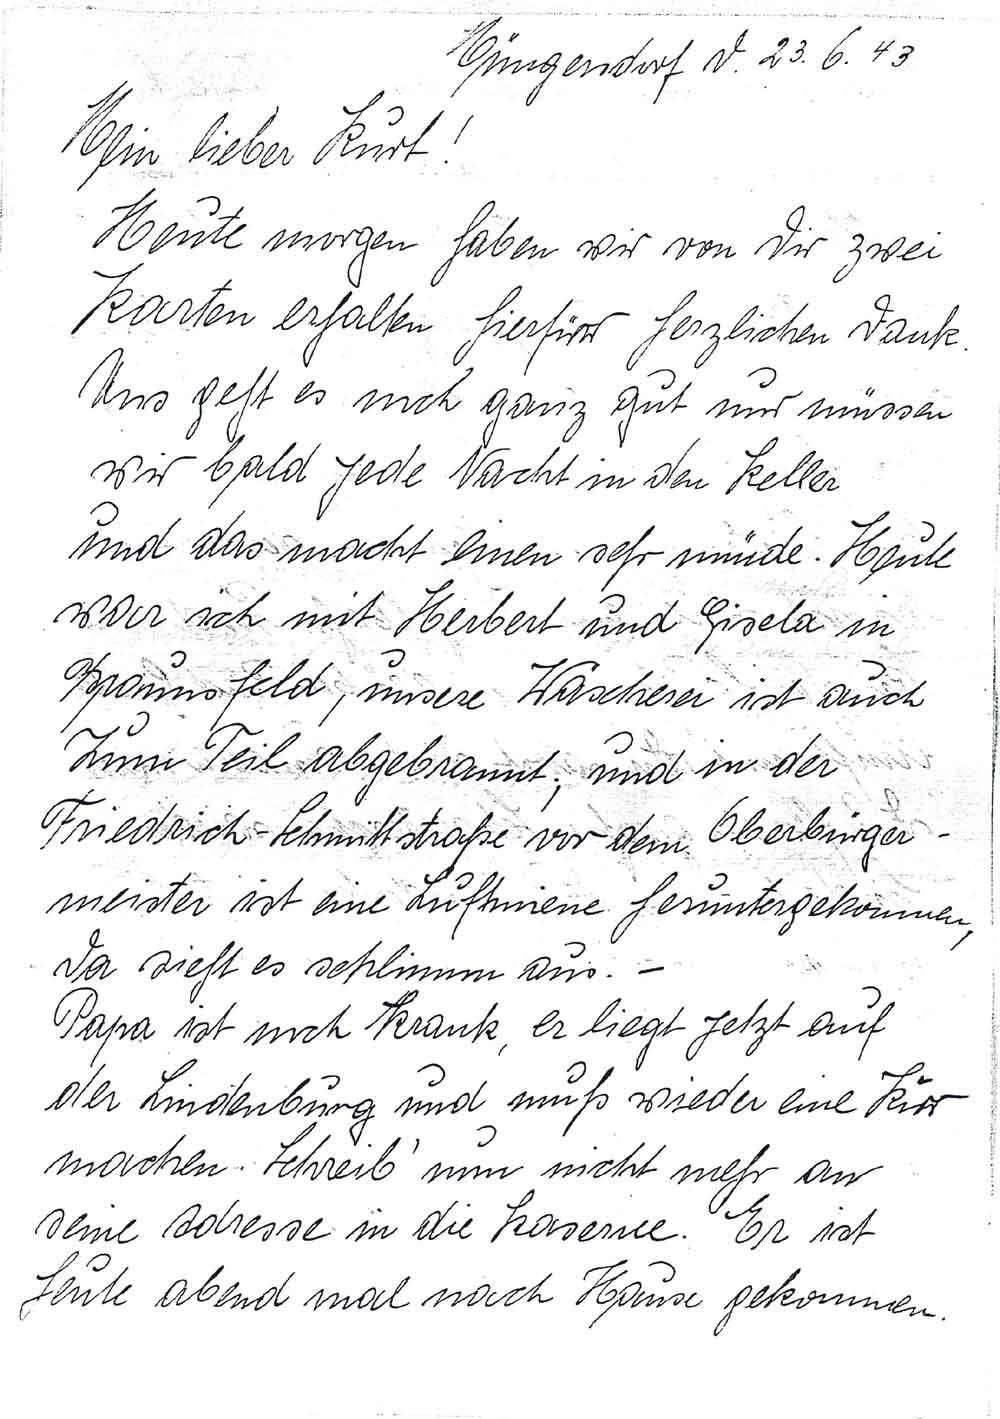 Müngersdorf d. 23.6.43
Mein lieber Kurt!
Heute morgen haben wir von Dir zwei
Karten erhalten hierfür herzlichen Dank.
Uns geht es noch ganz gut nur müssen
wir bald jede Nacht in den Keller
und das macht einen sehr müde. Heute
war ich mit Herbert und Gisela in
Braunsfeld, unsere Wäscherei ist auch
zum Teil abgebrannt, und in der
Friedrich-Schmittstraße vor dem Oberbürger-
meister ist eine Luftmiene heruntergekommen,
da sieht es schlimm aus. –
Papa ist noch krank, er liegt jetzt auf
der Lindenburg und muß wieder eine Kur
machen. Schreib' nun nicht mehr an
seine Adresse in die Kaserne. Er ist
heute abend mal nach Hause gekommen.